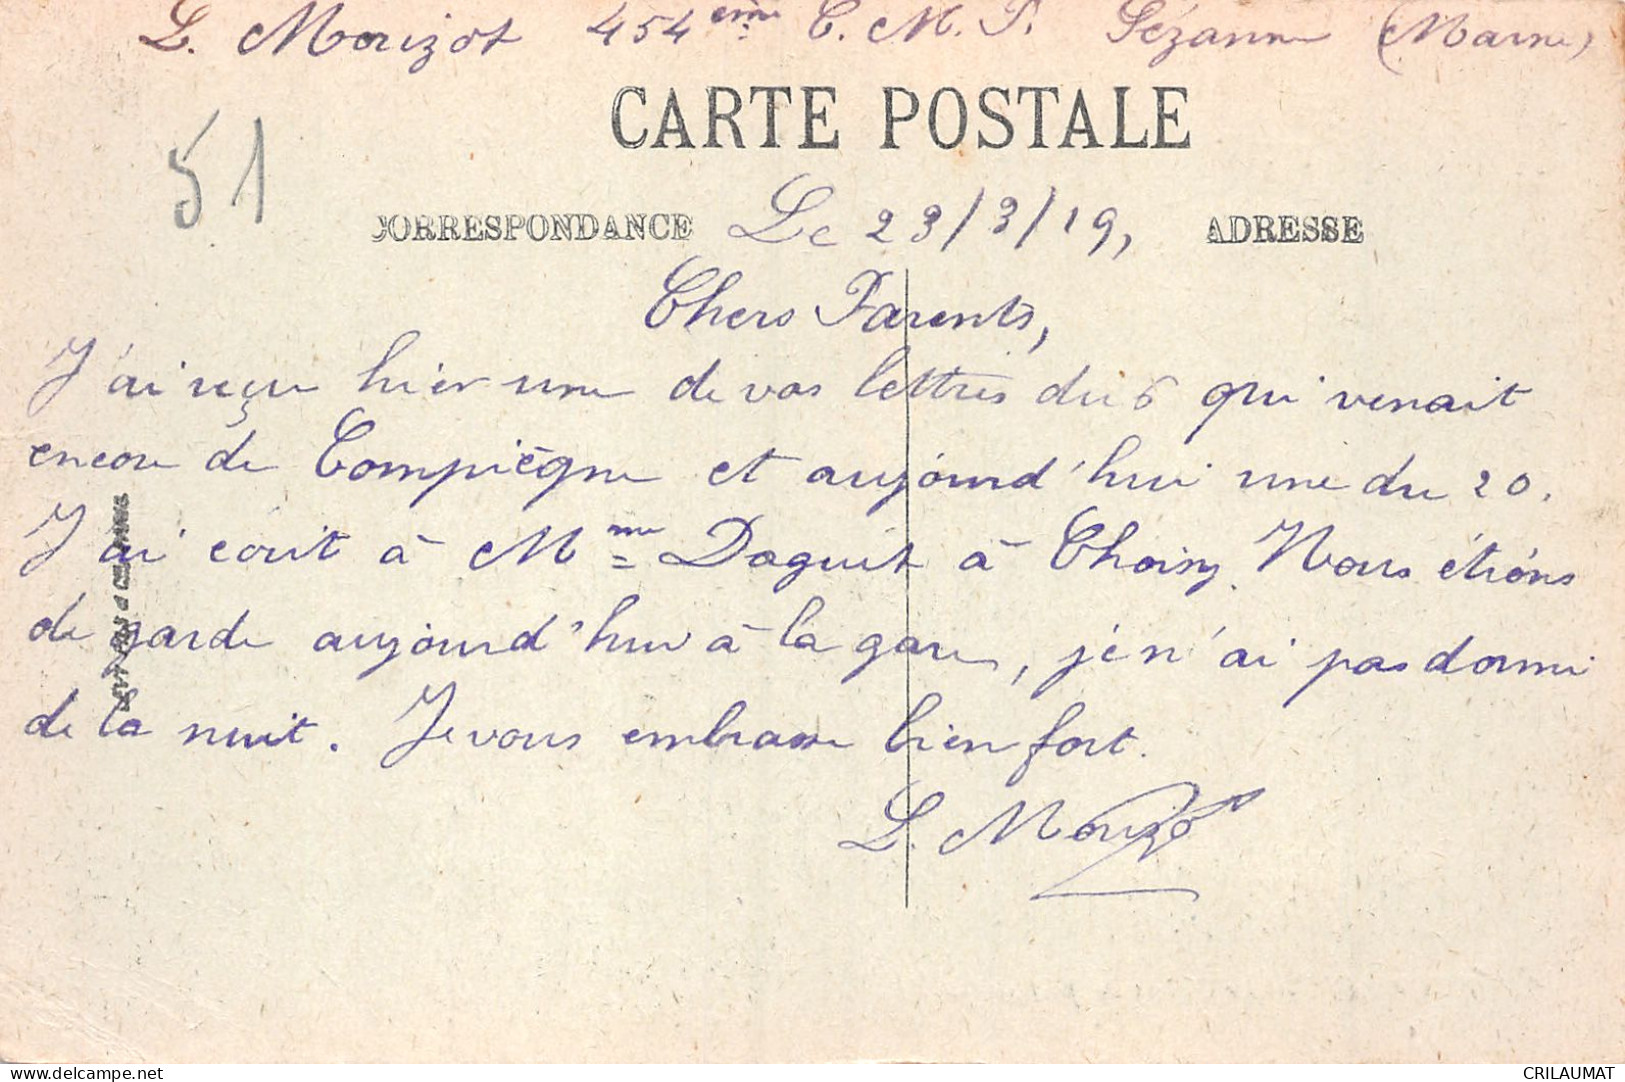 L. Morizot 454ème C. M. P. Sézanne (Marne)
CARTE POSTALE
51
CORRESPONDANCE Le 23/3/19, ADRESSE
Chers Parents,
J'ai reçu hier une de vos lettres du 6 qui venait
encore de Compiègne et aujourd'hui une du 20.
J'ai écrit à Mme Daguet à Choisy. Nous étions
de garde aujourd'hui à la gare, je n'ai pas dormi
de la nuit. Je vous embrasse bien fort.
L. Morizot
delcampe.net
CRILAUMAT